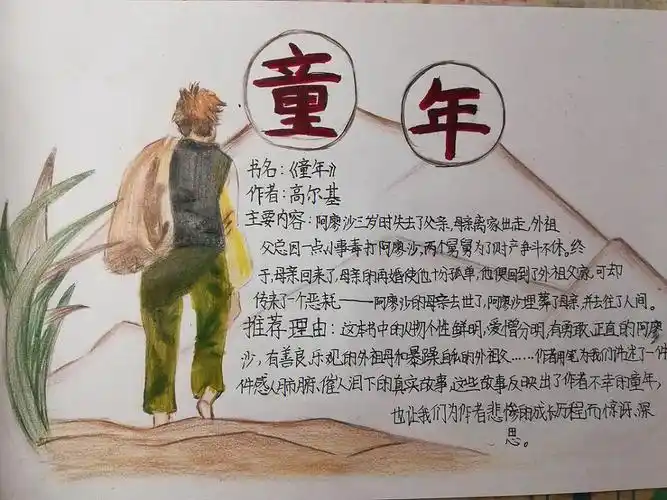 童年
书名：《童年》
作者：高尔基
主要内容：阿廖沙三岁时失去了父亲，母亲离家出走，外祖
父总因一点小事毒打阿廖沙，两个舅舅为了财产争斗不休。终
于，母亲回来了，母亲的再婚使他十分孤单，他便回到了外祖父家，可却
传来了一个恶耗——阿廖沙的母亲去世了，阿廖沙埋葬了母亲，并去往了人间。
推荐理由：这本书中的人物个性鲜明，爱憎分明，有勇敢、正直的阿廖
沙，有善良、乐观的外祖母和暴躁、自私的外祖父……作者用笔为我们件述了一件
件感人肺腑、催人泪下的真实故事，这些故事反映出了作者不幸的童年，
也让我们为作者悲惨的成长历程而惊讶、深
思。